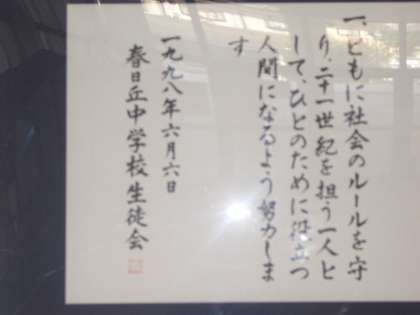 一、ともに社会のルールを守
り、二十一世紀を担う一人と
して、ひとのために役立つ
人間になるよう努力しま
す
一九九八年六月六日
春日丘中学校生徒会